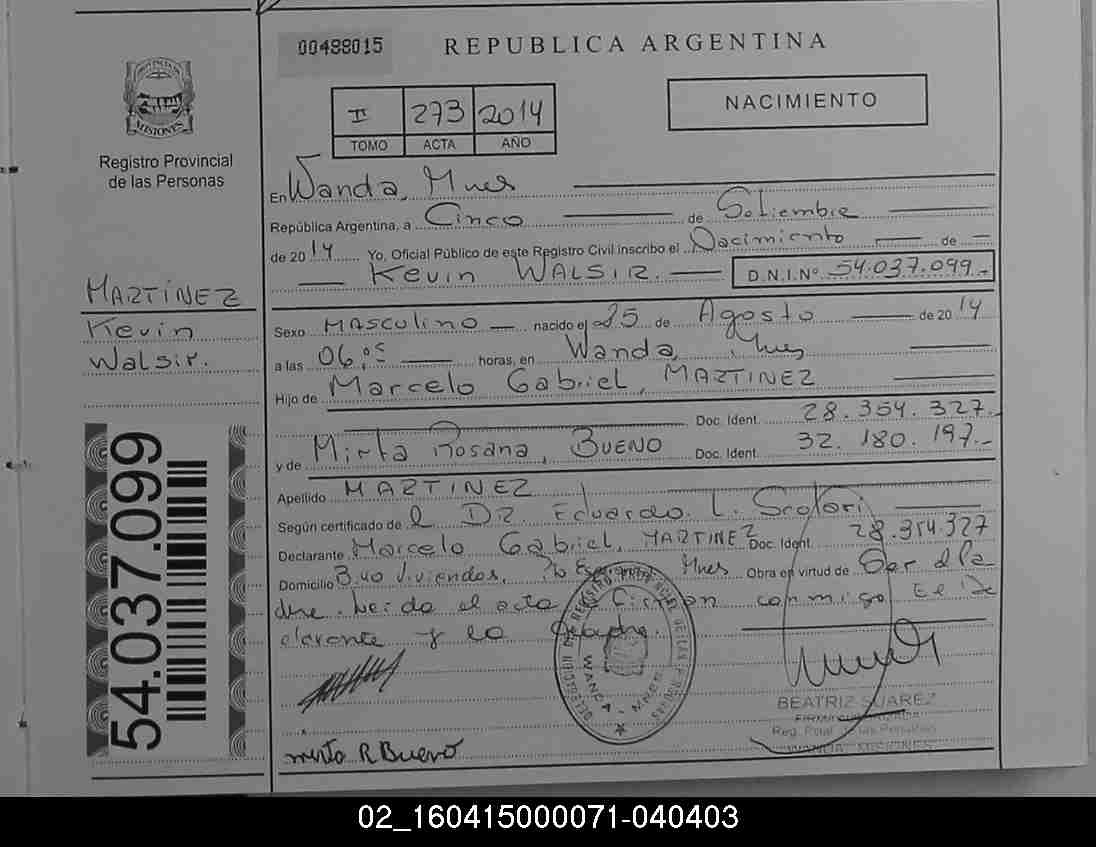 00488015
REPUBLICA ARGENTINA
PROVINCIA DE
MISIONES
Registro Provincial
de las Personas
II 273 2014
TOMO ACTA AÑO
NACIMIENTO
En Wanda, Mnes
República Argentina, a Cinco de Setiembre
de 2014 Yo, Oficial Público de este Registro Civil inscribo el Nacimiento de
Kevin WALSIR. D.N.I.Nº 54.037.099.-
MARTINEZ
Kevin
Walsir.
Sexo MASCULINO nacido el 25 de Agosto de 2014
a las 06,05 horas, en Wanda, Mnes
Hijo de Marcelo Gabriel, MARTINEZ
Doc. Ident. 28.354.327.-
y de Mirta Rosana, BUENO Doc. Ident. 32.180.197.-
Apellido MARTINEZ
Según certificado de el DR. Eduardo. L. Scotori
Declarante Marcelo Gabriel, MARTINEZ Doc. Ident. 28.354.327
Domicilio B.40 Viviendas, Mnes Obra en virtud de Ser el Pa
dre. Leida el acta la Firman conmigo El De
clarante y la Madre.
54.037.099
WANDA - MNES
BEATRIZ SUAREZ
FIRMA AUTORIZADA
Reg. Pcial. de las Personas
WANDA MISIONES
Mirta R Bueno
02_160415000071-040403